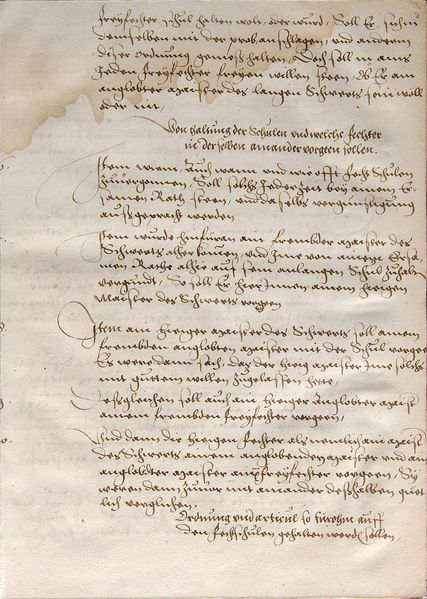 freyfechter schul halten wolt, oder wurd, Soll Er sich in
demselben mit der prob anschlagen, und anderm
diser ordnung gemeß halten, Doch soll in ains
Jeden freyfechter freyen willen steen, Ob Er ain
anglobter maister des langen Schwerts sein woll
oder nit,
Von haltung der Schulen und welche fechter
in derselben ainander vorgeen sollen.
Item wem, Auch wann und wie offt fecht Schulen
zuvergonnen, Soll solchs Jeder zeit bey ainem Er-
samen Rath steen, und daselbs vergunstigung
außgepracht werden
Item wurde hinfuran ain frembder maister des
Schwerts alher komen, und Ime von ainem Ersa-
men Rathe alhie auf sein anlangen Schul zuhalten
vergundt, So soll Er hierInnen ainem hiesigen
Maister des Schwerts vorgeen
Item ain hiesiger maister des Schwerts soll ainem
frembden anglobten maister mit der Schul vorgeen
Es were dann sach, das der hiesig maister Ime solchs
mit guttem willen zugelassen hette,
Desgleichen soll auch ain hiesiger Anglobter maister
ainem frembden freyfechter vorgeen,
Und dann die hiesigen fechter als nemlich ain maister
des Schwerts ainem anglobenden maister und ain
anglobter maister aim freyfechter vorgeen, Sy
weren dann zuvor mit ainander deßhalben guet-
lich verglichen.
Ordnung und articul so furohin auff
den fechtschulen gehalten werden sollen